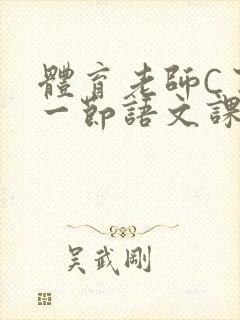 體育老師C
一節語文課
吳武剛